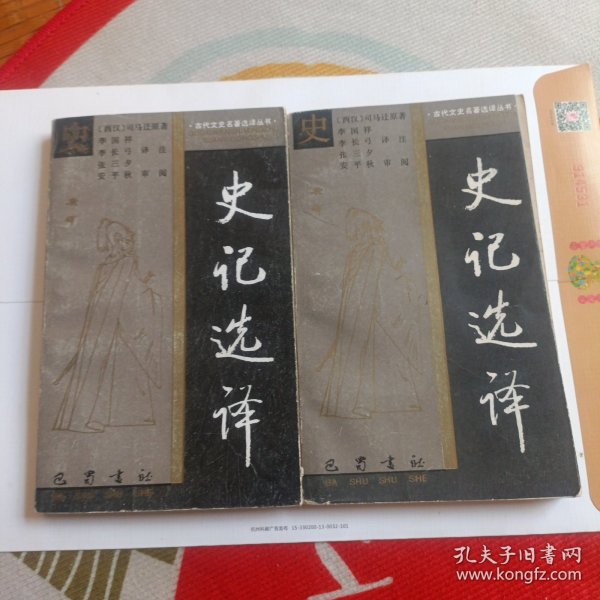 ·古代文史名著选译丛书·
〔西汉〕司马迁原著
李国祥
李长弓 译注
张三夕
安平秋 审阅
史记选译
巴蜀书社
BA SHU SHU SHE
·古代文史名著选译丛书·
史
〔西汉〕司马迁原著
李国祥
李长弓 译注
张三夕
安平秋 审阅
史记选译
巴蜀书社
BA SHU SHU SHE
914531
杭州科雕广告壹号 15-330200-11-0032-101
孔夫子旧书网
www.kongfz.com